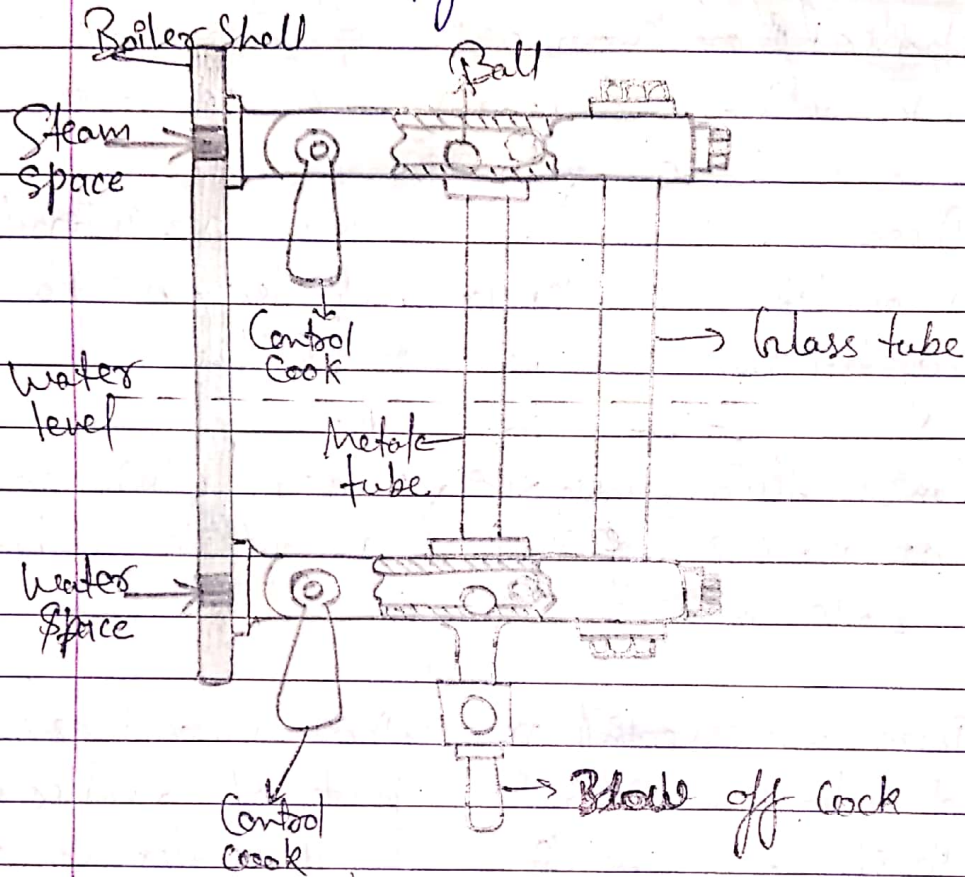 Boiler Shell
Ball
Steam
Space
Control
Cook
Glass tube
Water
level
Metal
tube
Water
Space
Control
coook
Blow off Cock